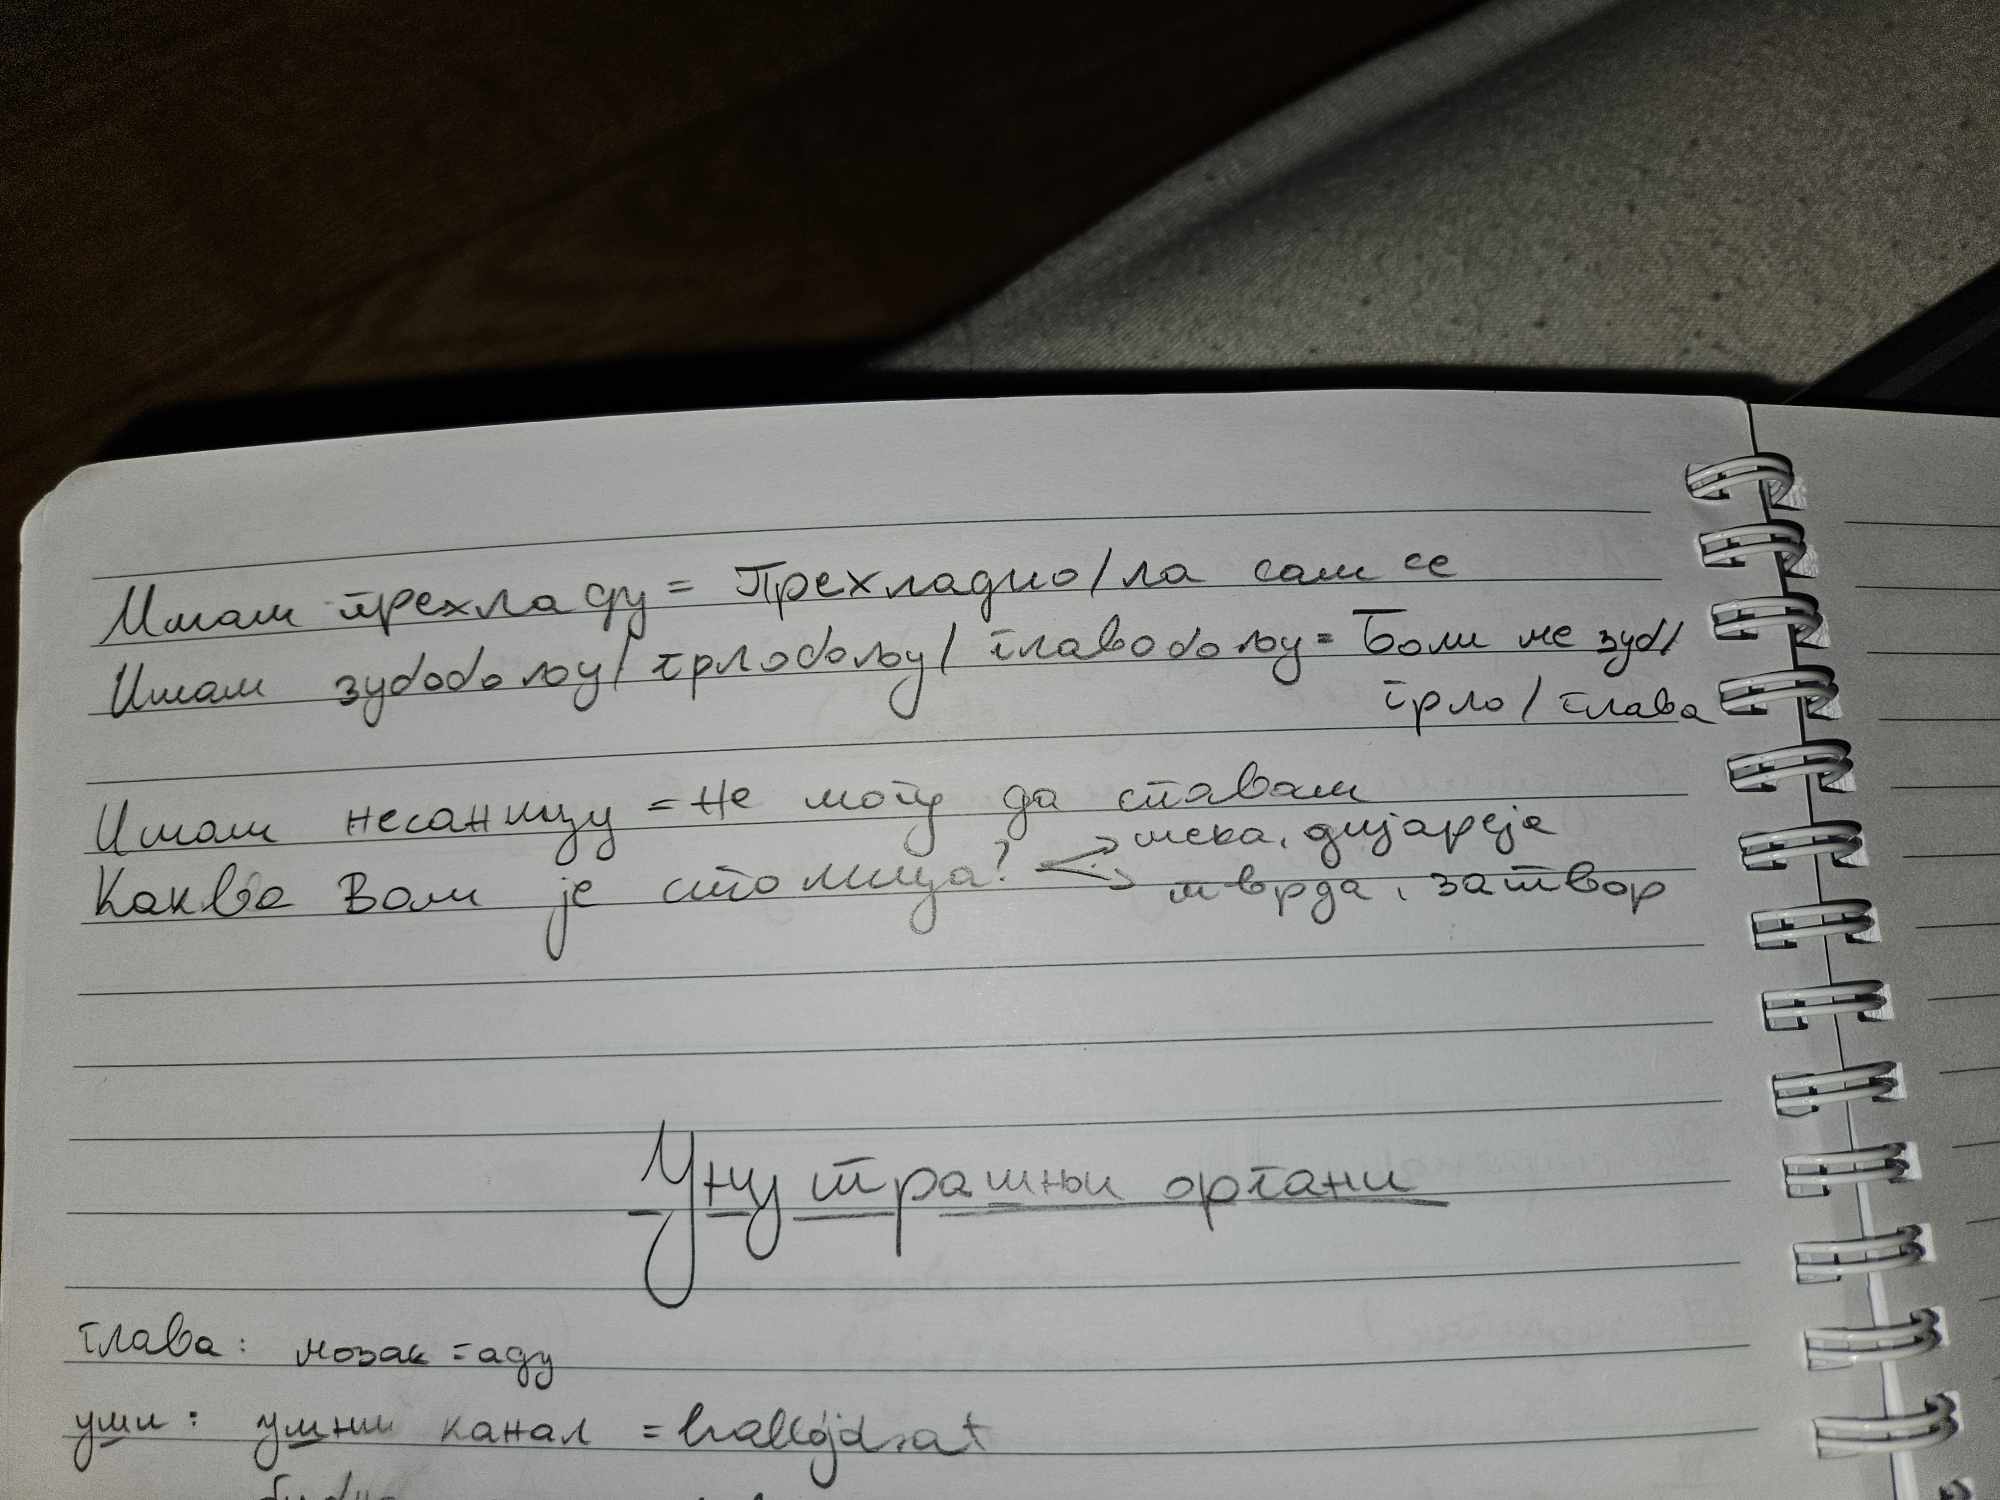 Имам прехладу = Прехладио/ла сам се
Имам зубобољу/грлобољу/главобољу = Боли ме зуб/
грло/глава
Имам несаницу = Не могу да спавам
мека, дијареја
Каква Вам је столица?
тврда, затвор
Унутрашњи органи
глава: мозак = агу
уши: ушни канал = hallójárat
бубна